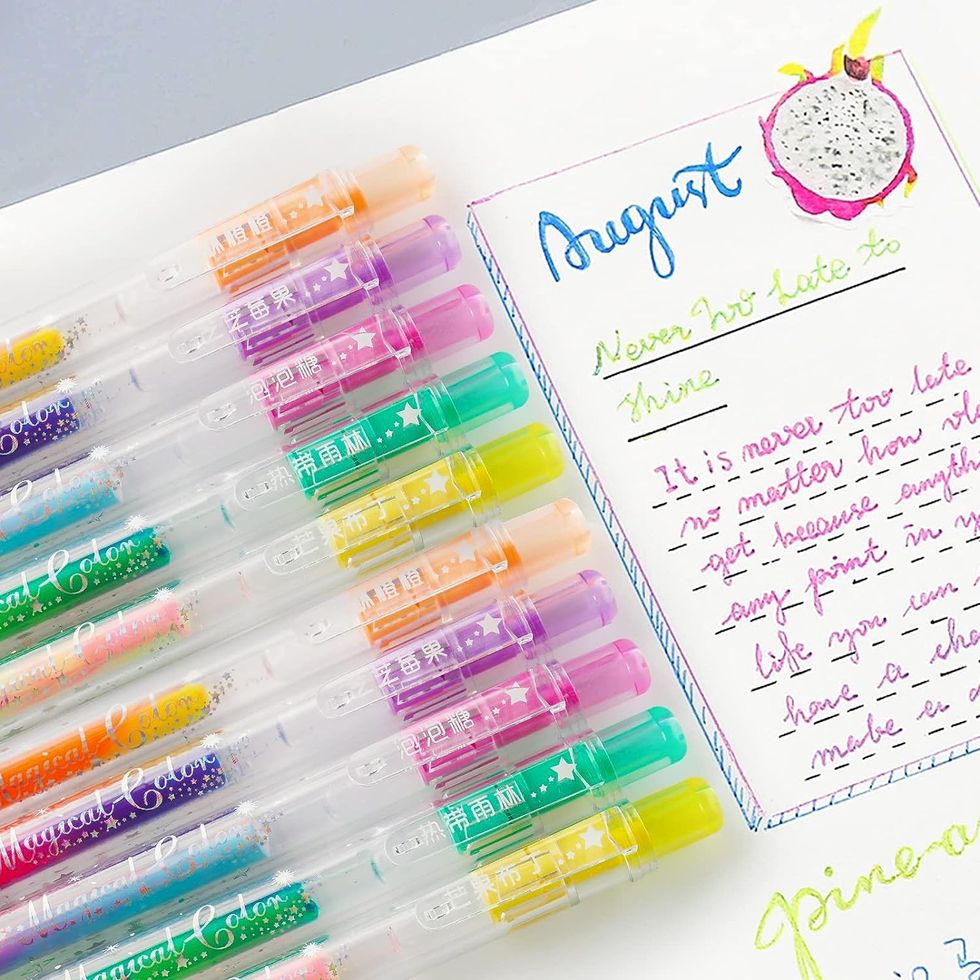 August
Never Too Late to
shine
It is never too late
no matter how
get because
any point in
life you can
have a
make a
pine-a
橙橙
芝芝莓果
泡泡糖
热带雨林
芒果布丁
橙橙
芝芝莓果
泡泡糖
热带雨林
芒果布丁
Color
Color
Color
Magical Color
Magical Color
Magical Color
Magical Color
Magical Color
Magical Color